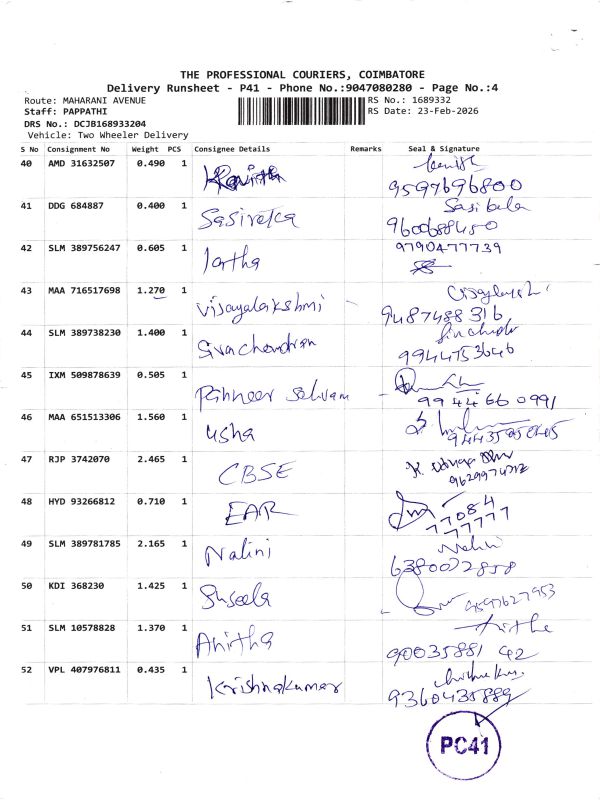 THE PROFESSIONAL COURIERS, COIMBATORE
Delivery Runsheet - P41 - Phone No.:9047080280 - Page No.:4
Route: MAHARANI AVENUE
Staff: PAPPATHI
DRS No.: DCJB168933204
Vehicle: Two Wheeler Delivery
RS No.: 1689332
RS Date: 23-Feb-2026
S No Consignment No Weight PCS Consignee Details Remarks Seal & Signature
40 AMD 31632507 0.490 1
9597696800
41 DDG 684887 0.400 1 Sasireka Sasi
42 SLM 389756247 0.605 1 9790477739
43 MAA 716517698 1.270 1 Vijayalakshmi
9487488316
44 SLM 389738230 1.400 1 Sivachandran
9944753646
45 IXM 509878639 0.505 1 Panneer Selvam
9944660991
46 MAA 651513306 1.560 1 Usha
47 RJP 3742070 2.465 1 CBSE
48 HYD 93266812 0.710 1 EAR
77084
77777
49 SLM 389781785 2.165 1 Nalini Nalini
50 KDI 368230 1.425 1 Suseela
9597627953
51 SLM 10578828 1.370 1 Anitha
9003588142
52 VPL 407976811 0.435 1 Krishnakumar
9360435889
PC41